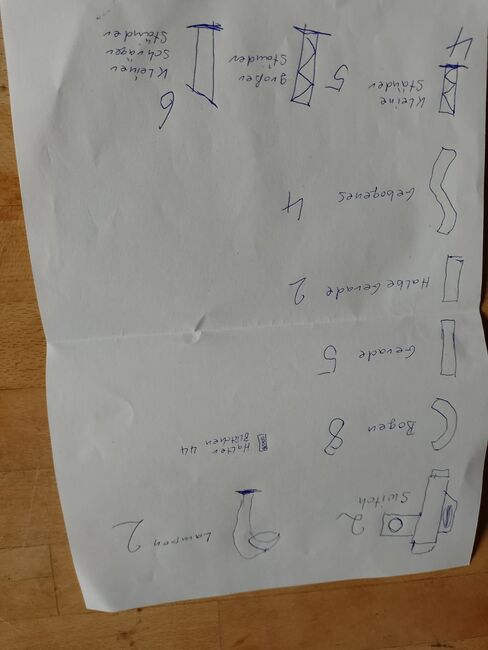 Switch
2
Lampen 2
Bogen 8
Halter 44
Blätchen
Gerade 5
Halbe Gerade 2
Gebogenes 4
Kleine
Ständer
4
großer
Ständer
5
Kleiner
schräger
Ständer
6